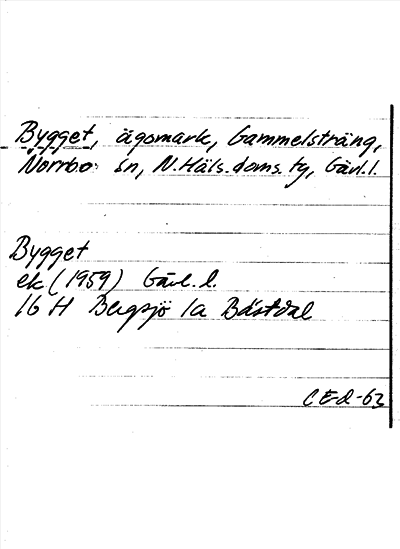 Bygget, ägomark, Gammelsträng,
Norrbo sn, N. Häls. doms. tg, Gävl. l.
Bygget
ek (1959) Gävl. l.
16 H Bergsjö 1a Båstdal
C E-d -63